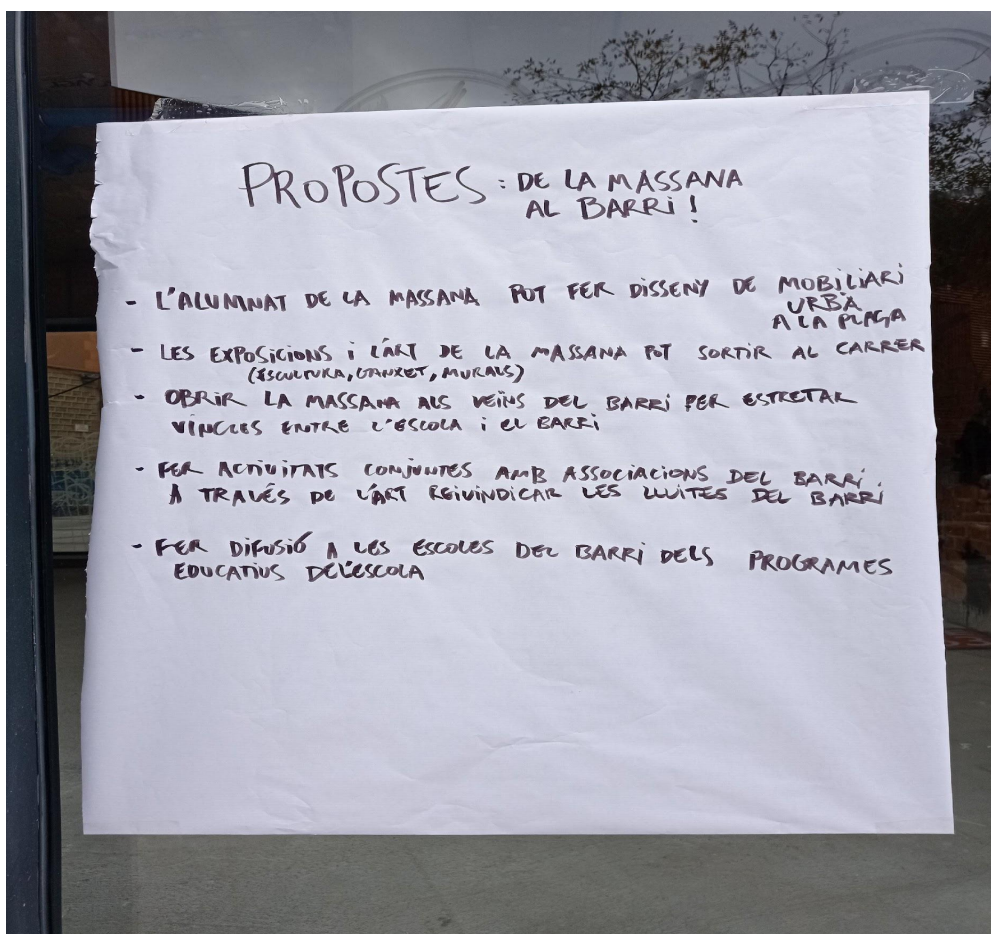 PROPOSTES : DE LA MASSANA
AL BARRi !
- L'ALUMNAT DE LA MASSANA POT FER DISSENY DE MOBILIARi
URBÀ
A LA PLAÇA
- LES EXPOSICIONS i L'ART DE LA MASSANA POT SORTIR AL CARRER
(ESCULTURA, GANXET, MURALS)
- OBRiR LA MASSANA ALS VEÏNS DEL BARRi PER ESTRETAR
VÍNCLES ENTRE L'ESCOLA i EL BARRi
- FER ACTIVITATS CONJUNTES AMB ASSOCIACIONS DEL BARRi.
A TRAVÉS DE L'ART REIVINDICAR LES LLUITES DEL BARRi
- FER DIFUSIÓ A LES ESCOLES DEL BARRi DELS PROGRAMES
EDUCATIUS DE L'ESCOLA